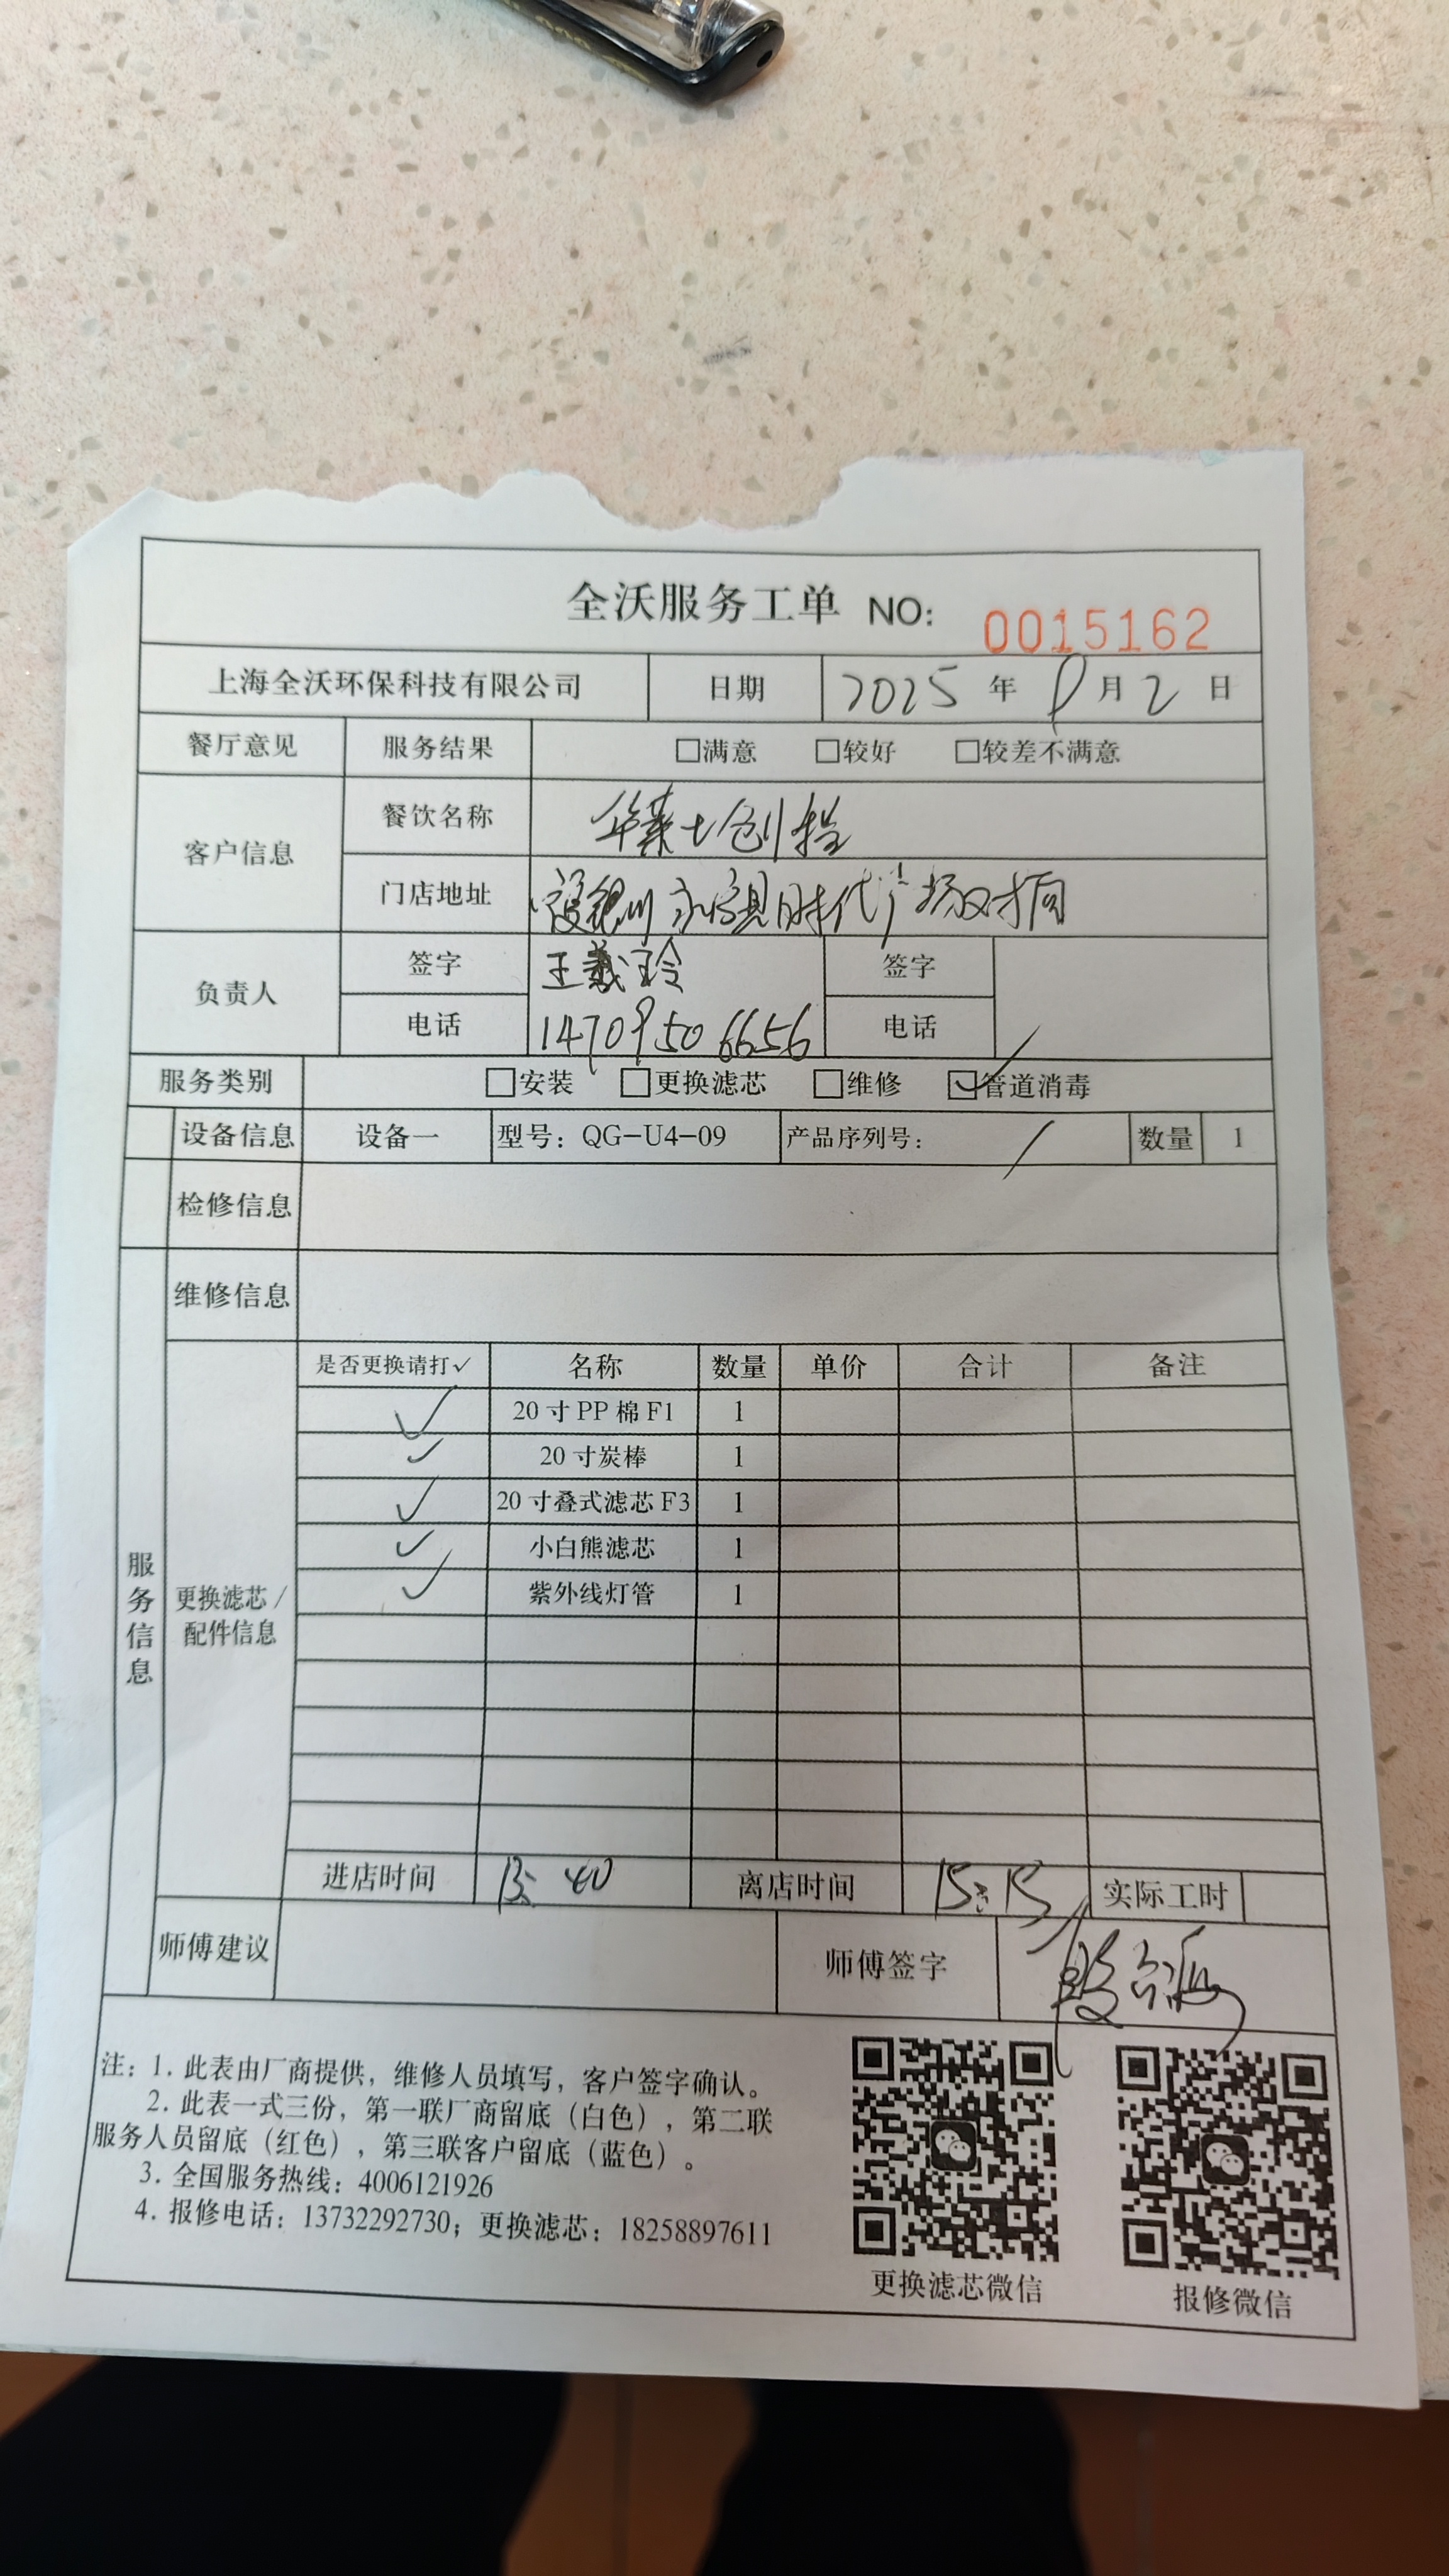 全沃服务工单 NO: 0015162
上海全沃环保科技有限公司 日期 2025 年 8 月 2 日
餐厅意见 服务结果 □满意 □较好 □较差不满意
客户信息 餐饮名称 华莱士创推
门店地址 银川永宁县时代广场对面
负责人 签字 王羲玲 签字
电话 14709506656 电话
服务类别 □安装 □更换滤芯 □维修 ☑管道消毒
设备信息 设备一 型号：QG-U4-09 产品序列号： / 数量 1
检修信息
维修信息
服务信息
更换滤芯/配件信息
是否更换请打✓ 名称 数量 单价 合计 备注
✓ 20寸PP棉F1 1
✓ 20寸炭棒 1
✓ 20寸叠式滤芯F3 1
✓ 小白熊滤芯 1
✓ 紫外线灯管 1
进店时间 13:40 离店时间 15:15 实际工时
师傅建议 师傅签字
注：1. 此表由厂商提供，维修人员填写，客户签字确认。
2. 此表一式三份，第一联厂商留底（白色），第二联
服务人员留底（红色），第三联客户留底（蓝色）。
3. 全国服务热线：4006121926
4. 报修电话：13732292730；更换滤芯：18258897611
更换滤芯微信 报修微信